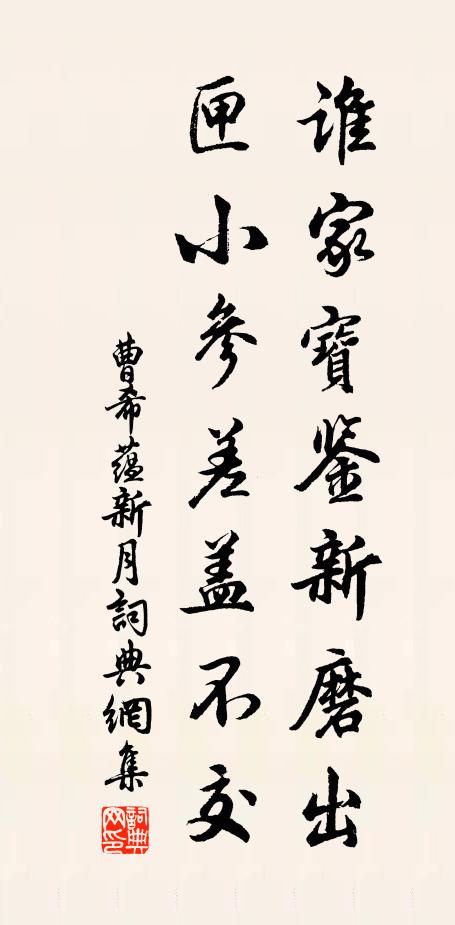 誰家寶鑒新磨出
匣小參差蓋不交
曹希蘊新月詞典網集
詞典網印